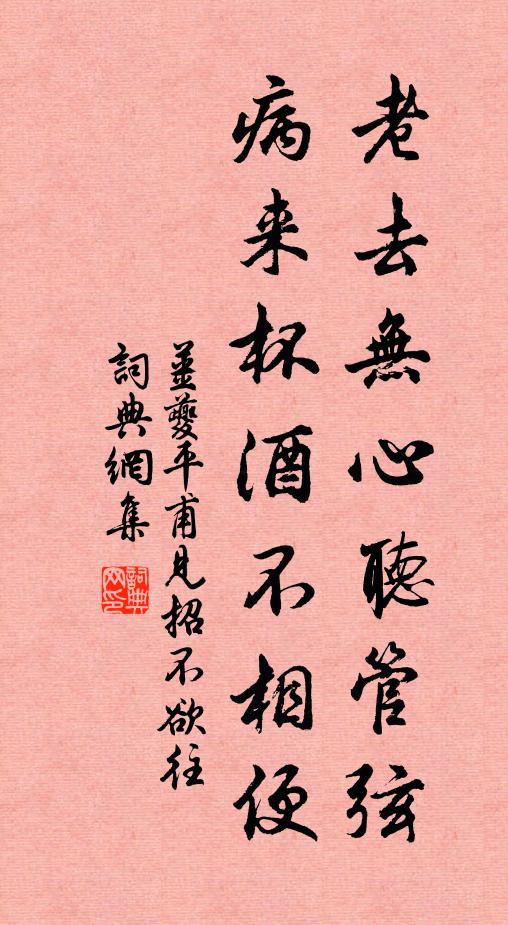 老去無心聽管弦
病来杯酒不相便
姜夔平甫見招不欲往
詞典網集
詞典网印